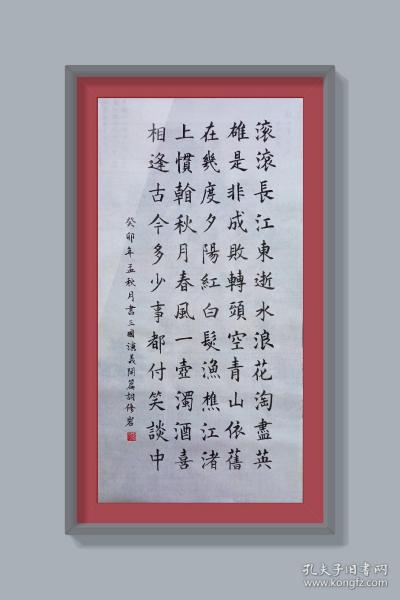 滚滚長江東逝水浪花淘盡英
雄是非成敗轉頭空青山依舊
在幾度夕陽紅白髮漁樵江渚
上慣翰秋月春風一壺濁酒喜
相逢古今多少事都付笑談中
癸卯年孟秋月書三國演義開篇詞修岩
孔夫子旧书网
www.kongfz.com